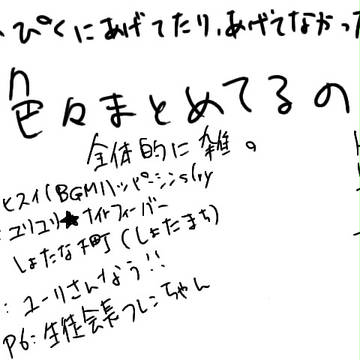 、ぴくにあげてたり、あげてなかった
色々まとめてるの
全体的に雑。
ヒスイ(BGM)ハッピーシンsly
: ユリユリ★ナイトフィーバー
しょたな町(しょたまち)
: ユーリさんなう!!
P6:生徒会長フレンちゃん